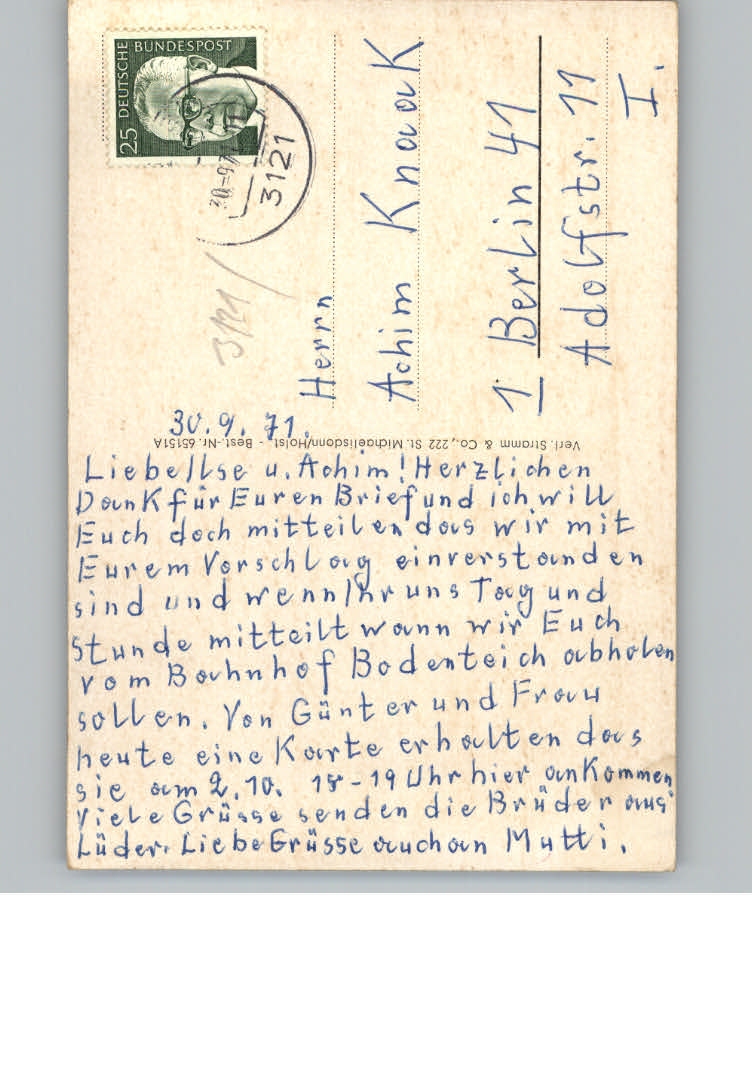 DEUTSCHE BUNDESPOST
25
3121
3121
Herrn
Achim Knaak
1 Berlin 41
Adolfstr. 11
I.
30.9.71.
Verl. Stramm & Co., 222 St. Michaelisdonn/Holst. - Best.-Nr. 65151A
Liebe Ilse u. Achim! Herzlichen
Dank für Euren Brief und ich will
Euch doch mitteilen das wir mit
Eurem Vorschlag einverstanden
sind und wenn Ihr uns Tag und
Stunde mitteilt wann wir Euch
vom Bahnhof Bodenteich abholen
sollen. Von Günter und Frau
heute eine Karte erhalten das
sie am 2.10. 18-19 Uhr hier ankommen
Viele Grüsse senden die Brüder aus
Lüder. Liebe Grüsse auch an Mutti.